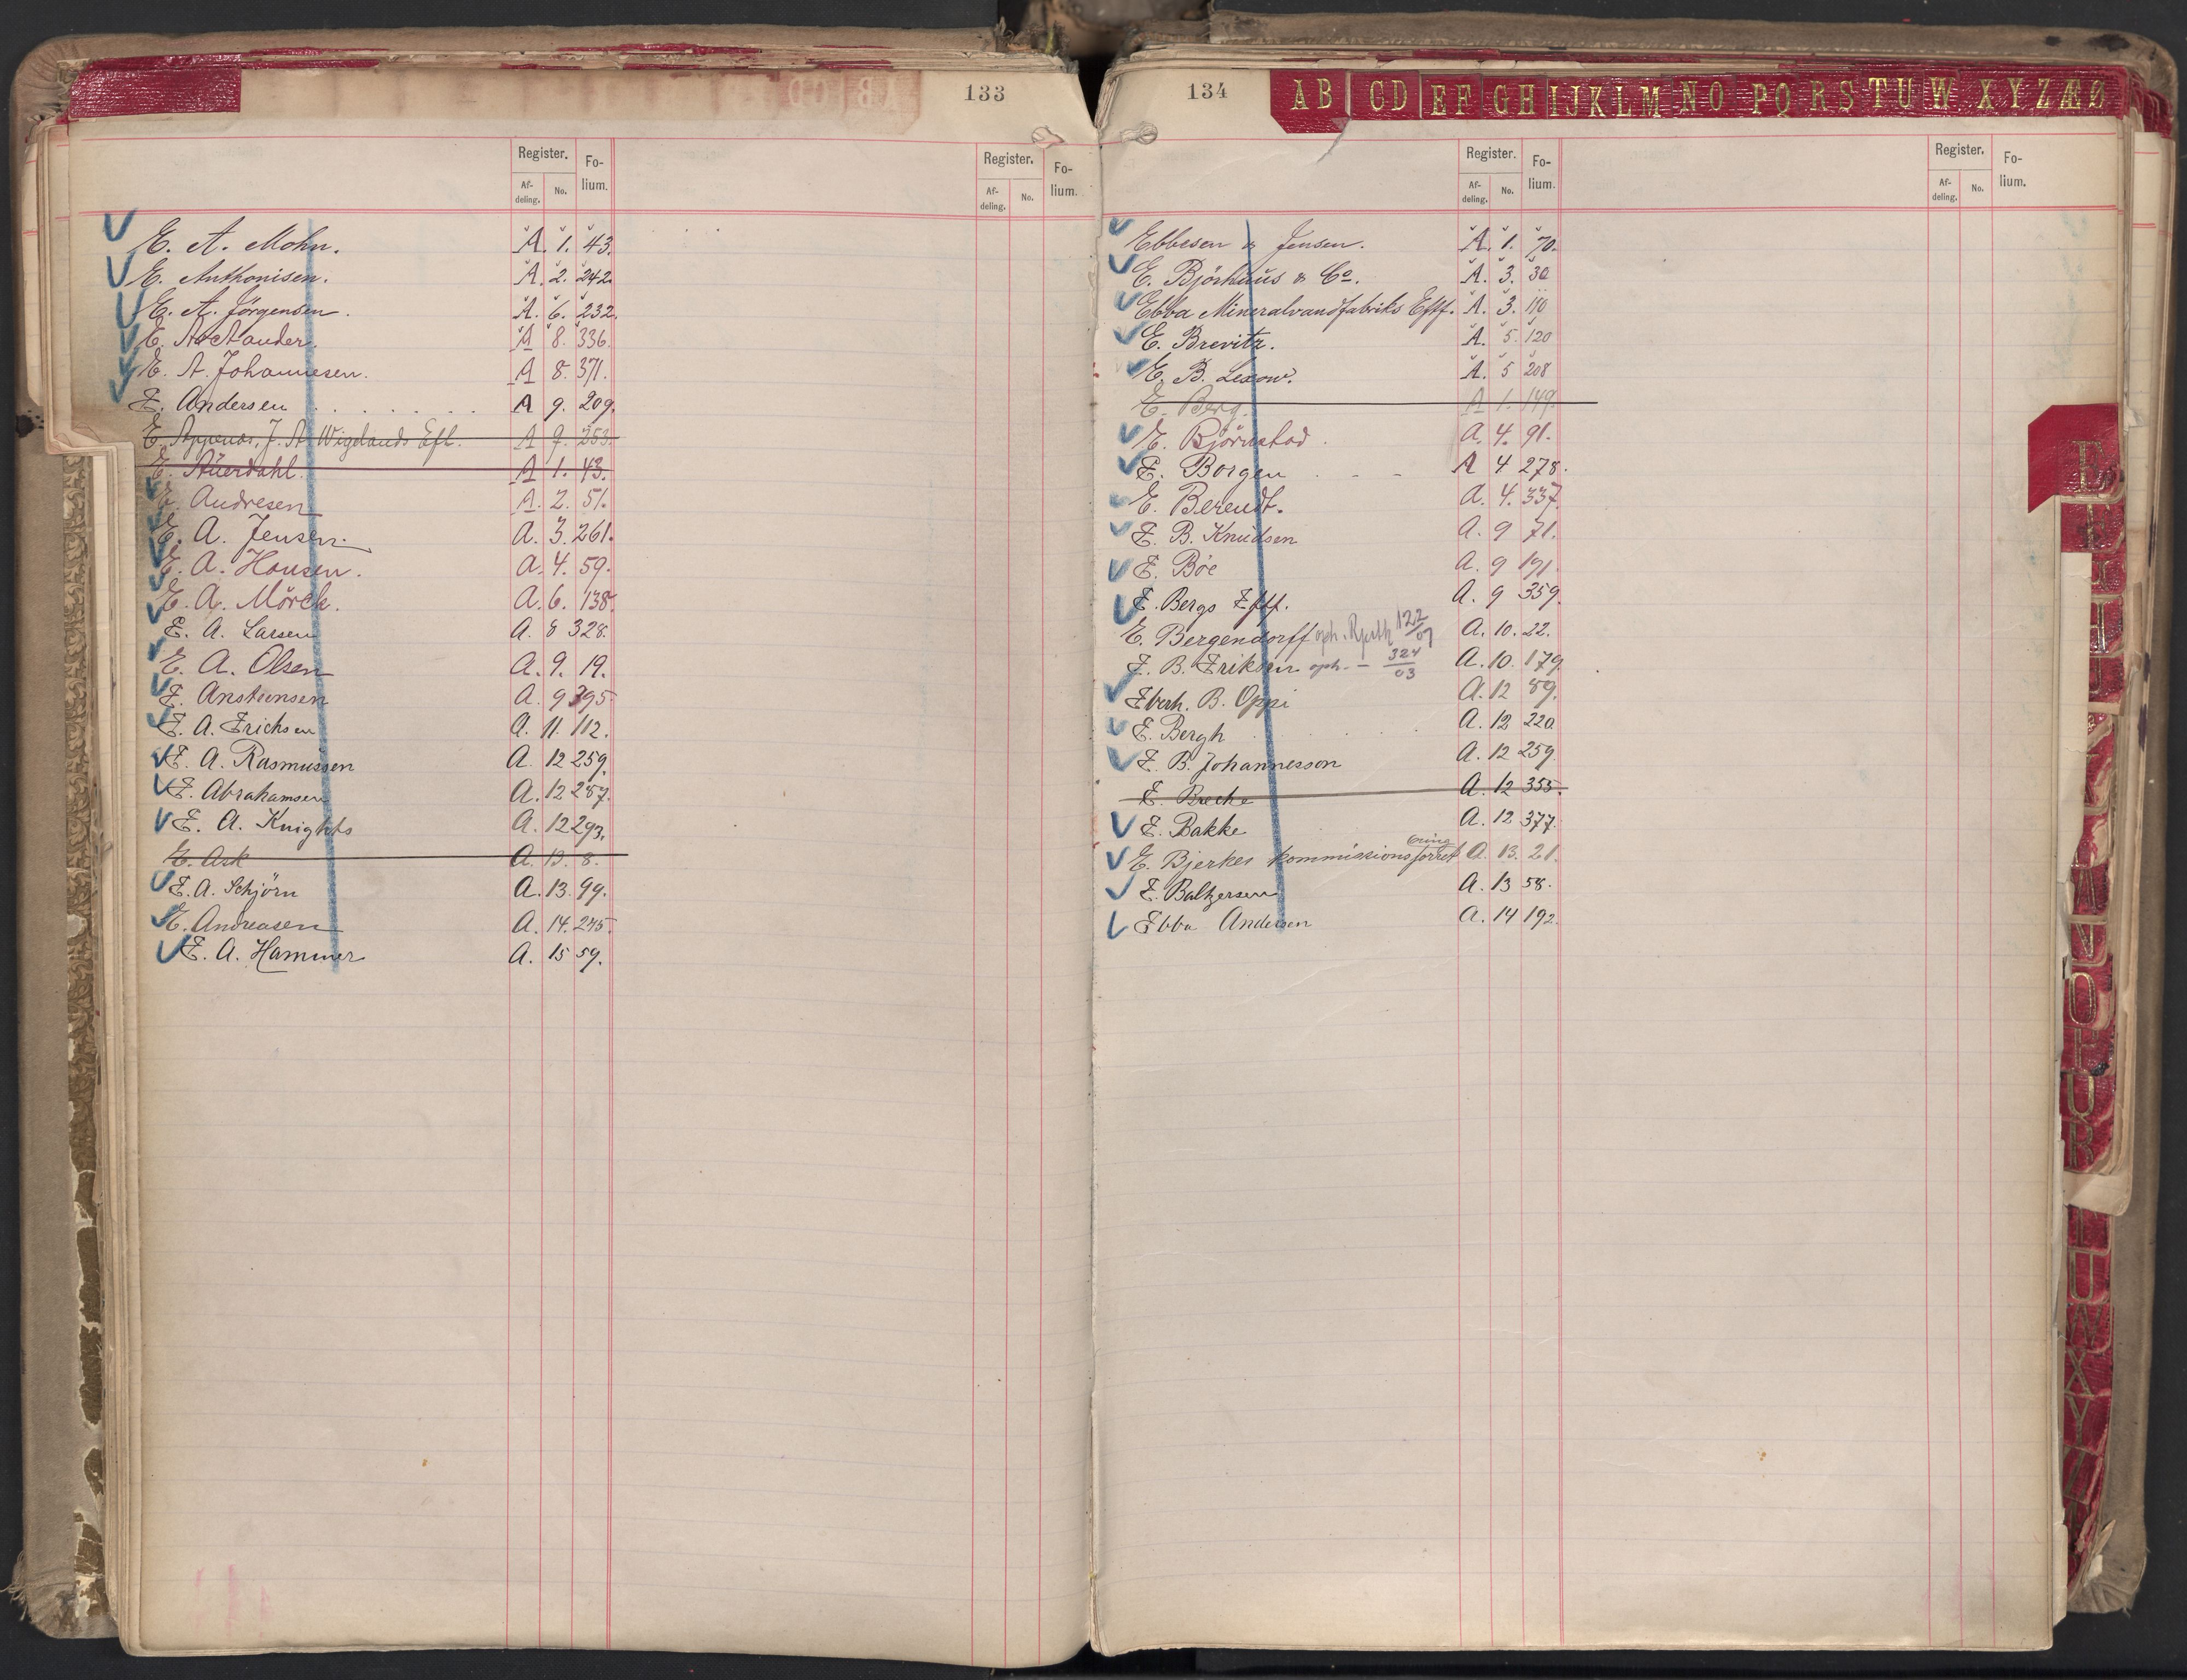 133
Register. Fo-
Af- No. lium.
deling.
Register. Fo-
Af- No. lium.
deling.
E. A. Mohn. A. 1. 43.
E. Anthonisen. A. 2. 242.
E. A. Jörgensen. A. 6. 232.
E. A. A 8. 336.
E. A. Johannesen. A 8. 371.
E. Andersen A 9. 209.
E. J. A. Wigelands Eft. A 9. 253.
E. Auerdahl. A 1. 43.
E. Andresen A. 2. 51.
E. A. Jensen. A. 3. 261.
E. A. Hansen. A. 4. 59.
E. A. Mörck. A. 6. 138.
E. A. Larsen A. 8 328.
E. A. Olsen A. 9. 19.
E. Anstensen A. 9 395
E. A. Ericksen A. 11. 112.
E. A. Rasmussen A. 12 259.
E. Abrahamsen A. 12 287.
E. A. Knights A. 12 293.
E. Ask A. 13. 8.
E. A. Schjörn A. 13. 99.
E. Andreasen A. 14. 245.
E. A. Hammer A. 15 59.
134
AB CD EF GH IJKLM NO PQ RS TU W XYZÆØ
Register. Fo-
Af- No. lium.
deling.
Register. Fo-
Af- No. lium.
deling.
Ebbesen & Jensen. A. 1. 70.
E. Björhuus & Co. A. 3. 30
Ebba Mineralvandfabriks Eftf. A. 3. 110
E. Brevitz. A. 5. 120
E. B. Lexow. A. 5 208
E. Berg. A 1. 149.
E. Björnstad. A. 4. 91.
E. Borgen A 4 278.
E. Berendt. A. 4. 337.
E. B. Knudsen A. 9 71.
E. Böe A. 9 191.
E. Bergs Eftf. A. 9 359.
E. Bergendorff oph. 122/07 A. 10. 22.
E. B. Eriksen oph. — 324/03 A. 10. 179
Eberh. B. Oppi A. 12 89.
E. Bergh A. 12 220
E. B. Johannesson A. 12 259.
E. Breche A. 12 355.
E. Bakke A. 12 377.
E. Bjerkes kommissionsforret A. 13. 21.
ning
E. Baltzersen A. 13 58.
Ebba Andersen A. 14 192.